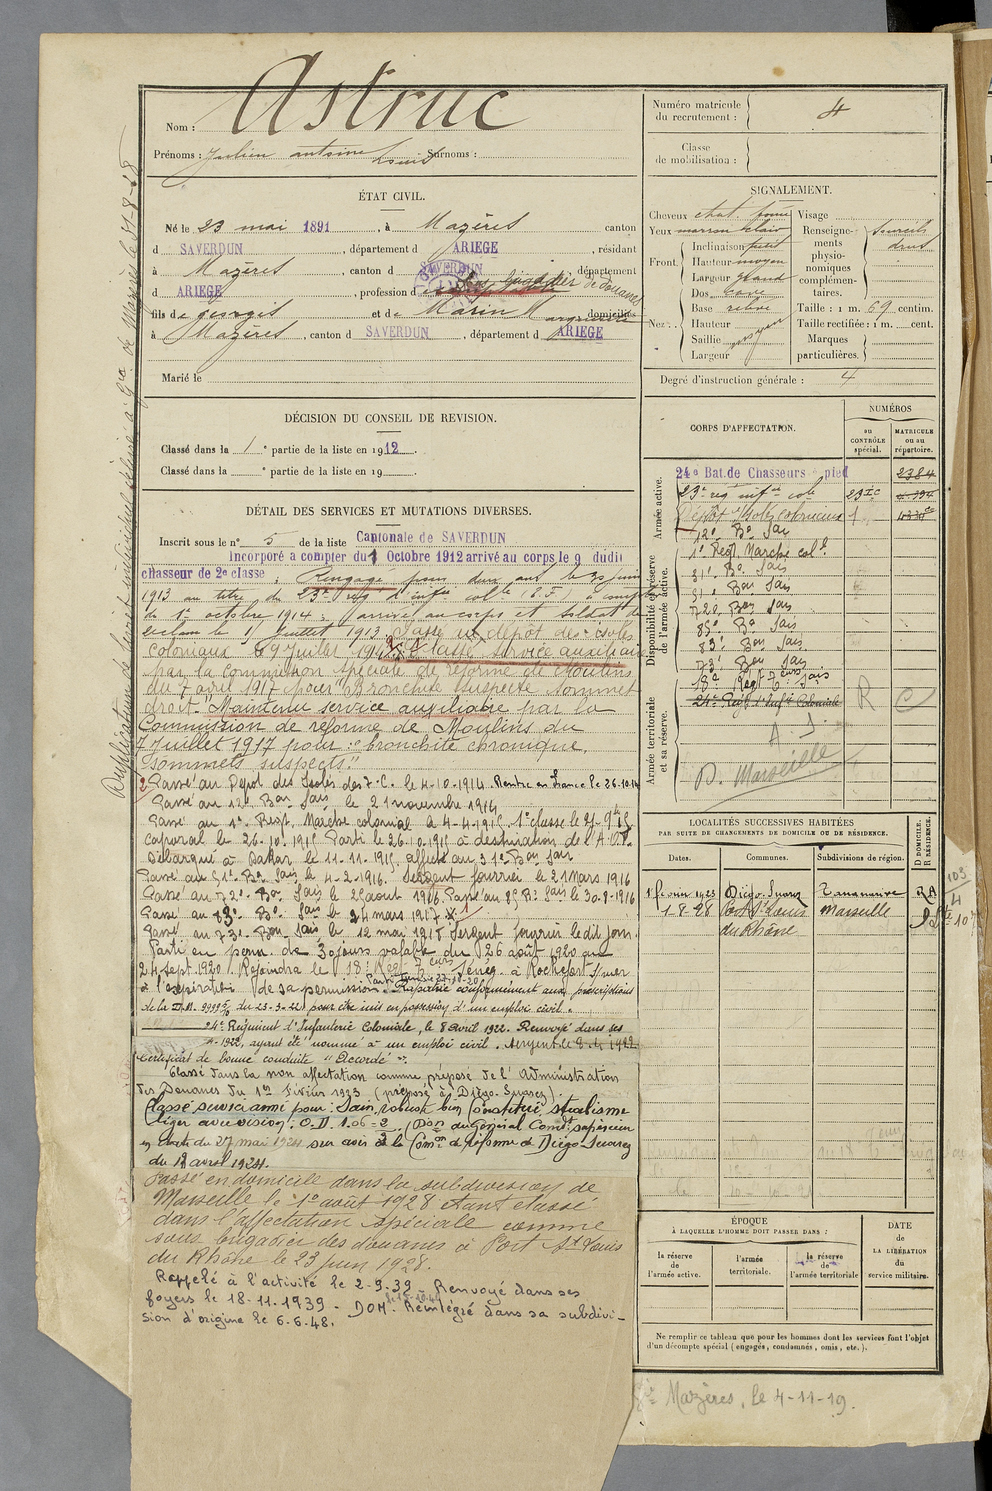 Astruc
Nom :
Prénoms : Julien antoine Louis Surnoms :
Numéro matricule du recrutement : 4
Classe de mobilisation :
ÉTAT CIVIL.
Né le 23 mai 1891, à Mazères canton
d SAVERDUN, département d ARIEGE, résidant
à Mazères, canton d SAVERDUN, département
d ARIEGE, profession d brigadier de douanes
fils de georges et de Marin Marguerite domiciliés
à Mazères, canton d SAVERDUN, département d ARIEGE
Marié le
SIGNALEMENT.
Cheveux chat. foncé Visage
Yeux marron clair
Front. Inclinaison petit
Hauteur moyen
Largeur grand
Nez. Dos cave
Base relevé
Hauteur
Saillie moyen
Largeur
Renseignements physionomiques complémentaires. sourcils drus
Taille : 1 m. 69 centim.
Taille rectifiée : 1 m. cent.
Marques particulières.
Degré d'instruction générale : 4
DÉCISION DU CONSEIL DE REVISION.
Classé dans la 1e partie de la liste en 1912.
Classé dans la e partie de la liste en 19
DÉTAIL DES SERVICES ET MUTATIONS DIVERSES.
Inscrit sous le no 5 de la liste Cantonale de SAVERDUN
Incorporé a compter du 1 Octobre 1912 arrivé au corps le 9 dudit
chasseur de 2e classe. Rengagé pour deux ans le 30 juin
1913 au titre du 23e rég d'infie colle à compter
du 1er octobre 1914. arrivé au corps et soldat de
2e classe le 1 Juillet 1913. Passé au dépôt des isolés
coloniaux le 9 Juillet 1914. Passé service auxiliaire
par la commission spéciale de réforme de Moulins
du 7 avril 1917 pour Bronchite suspecte sommet
droit. Maintenu service auxiliaire par la
Commission de réforme de Moulins du
7 Juillet 1917 pour : "bronchite chronique,
sommets suspects."
Passé au Dépôt des Isolés des T.C. le 4-10-1914. Rentré en France le 26.10.14
Passé au 12e Bon Sais le 21 novembre 1914
Passé au 1er Regt Marche colonial le 4-4-1915. 1e classe le 21-9-15
caporal le 26-10-1915 Parti le 26-10-1915 à destination de l'A.O.F.
Débarqué à Dakar le 11-11-1915, affecté au 31e Bon Sais
Passé au 51e Bon Sais le 4-2-1916. Sergent fourrier le 21 mars 1916
Passé au 72e Bon Sais le 25 août 1916. Passé au 85 Bn Sais le 30-8-1916
Passé au 83e Bn Sais le 24 mars 1917
Passé au 73e Bon Sais le 12 mai 1918 Sergent fourrier le dit jour.
Parti en perm. de 30 jours valable du 26 août 1920 au
24 sept. 1920. Rejoindra le 18e Regt Tirs Sénég. à Rochefort s/mer
à l'expiration de sa permission. Rapatrié conformément aux prescriptions
de la D.M. du 23-3-22 pour être mis en possession d'un emploi civil.
24e Régiment d'Infanterie Coloniale, le 8 avril 1922. Renvoyé dans ses
1922, ayant été nommé à un emploi civil.
Certificat de bonne conduite "Accordé".
Classé dans la non affectation comme préposé de l'Administration
des Douanes du 1er Février 1923 (préposé à Diégo-Suarez).
Classé service armé pour : Sain, robuste, bien constitué, strabisme
léger avec vision. O.D. 1. OG = 2/3. Don du Général Comdt supérieur
en date du 27 mai 1924 sur avis de la Comon de réforme de Diégo-Suarez
du 18 avril 1924.
Passé en domicile dans la subdivision de
Marseille le 1er août 1928 étant classé
dans l'affectation spéciale comme
sous brigadier des douanes à Port St Louis
du Rhône le 23 juin 1928.
Rappelé à l'activité le 2-9-39. Renvoyé dans ses
foyers le 18-11-1939 - DOM. Réintégré dans sa subdivi-
sion d'origine le 6.6.48.
CORPS D'AFFECTATION.
NUMÉROS
au CONTRÔLE spécial.
MATRICULE ou au répertoire.
Armée active.
24e Bat. de Chasseurs à pied 2384
23e reg infie cole
Dépôt Isolés Coloniaux
12e Bn Sais
1er Regt Marche colal
Disponibilité et réserve de l'armée active.
31e Bn Sais
51e Bon Sais
72e Bon Sais
85e Bn Sais
83e Bon Sais
73e Bon Sais
18e Regt Tirs Sais
24e Regt d'Infie Coloniale
Armée territoriale et sa réserve.
R C
A. S.
D. Marseille
LOCALITÉS SUCCESSIVES HABITÉES
PAR SUITE DE CHANGEMENTS DE DOMICILE OU DE RÉSIDENCE.
Dates. Communes. Subdivisions de région. D DOMICILE. R RÉSIDENCE.
1er février 1923 Diégo-Suarez Tananarive R
1-8-28 Port St Louis du Rhône Marseille D
103
4
ÉPOQUE
À LAQUELLE L'HOMME DOIT PASSER DANS :
la réserve de l'armée active.
l'armée territoriale.
la réserve de l'armée territoriale
DATE DE LA LIBÉRATION du service militaire.
Ne remplir ce tableau que pour les hommes dont les services font l'objet
d'un décompte spécial (engagés, condamnés, omis, etc.).
Mazères, le 4-11-19.